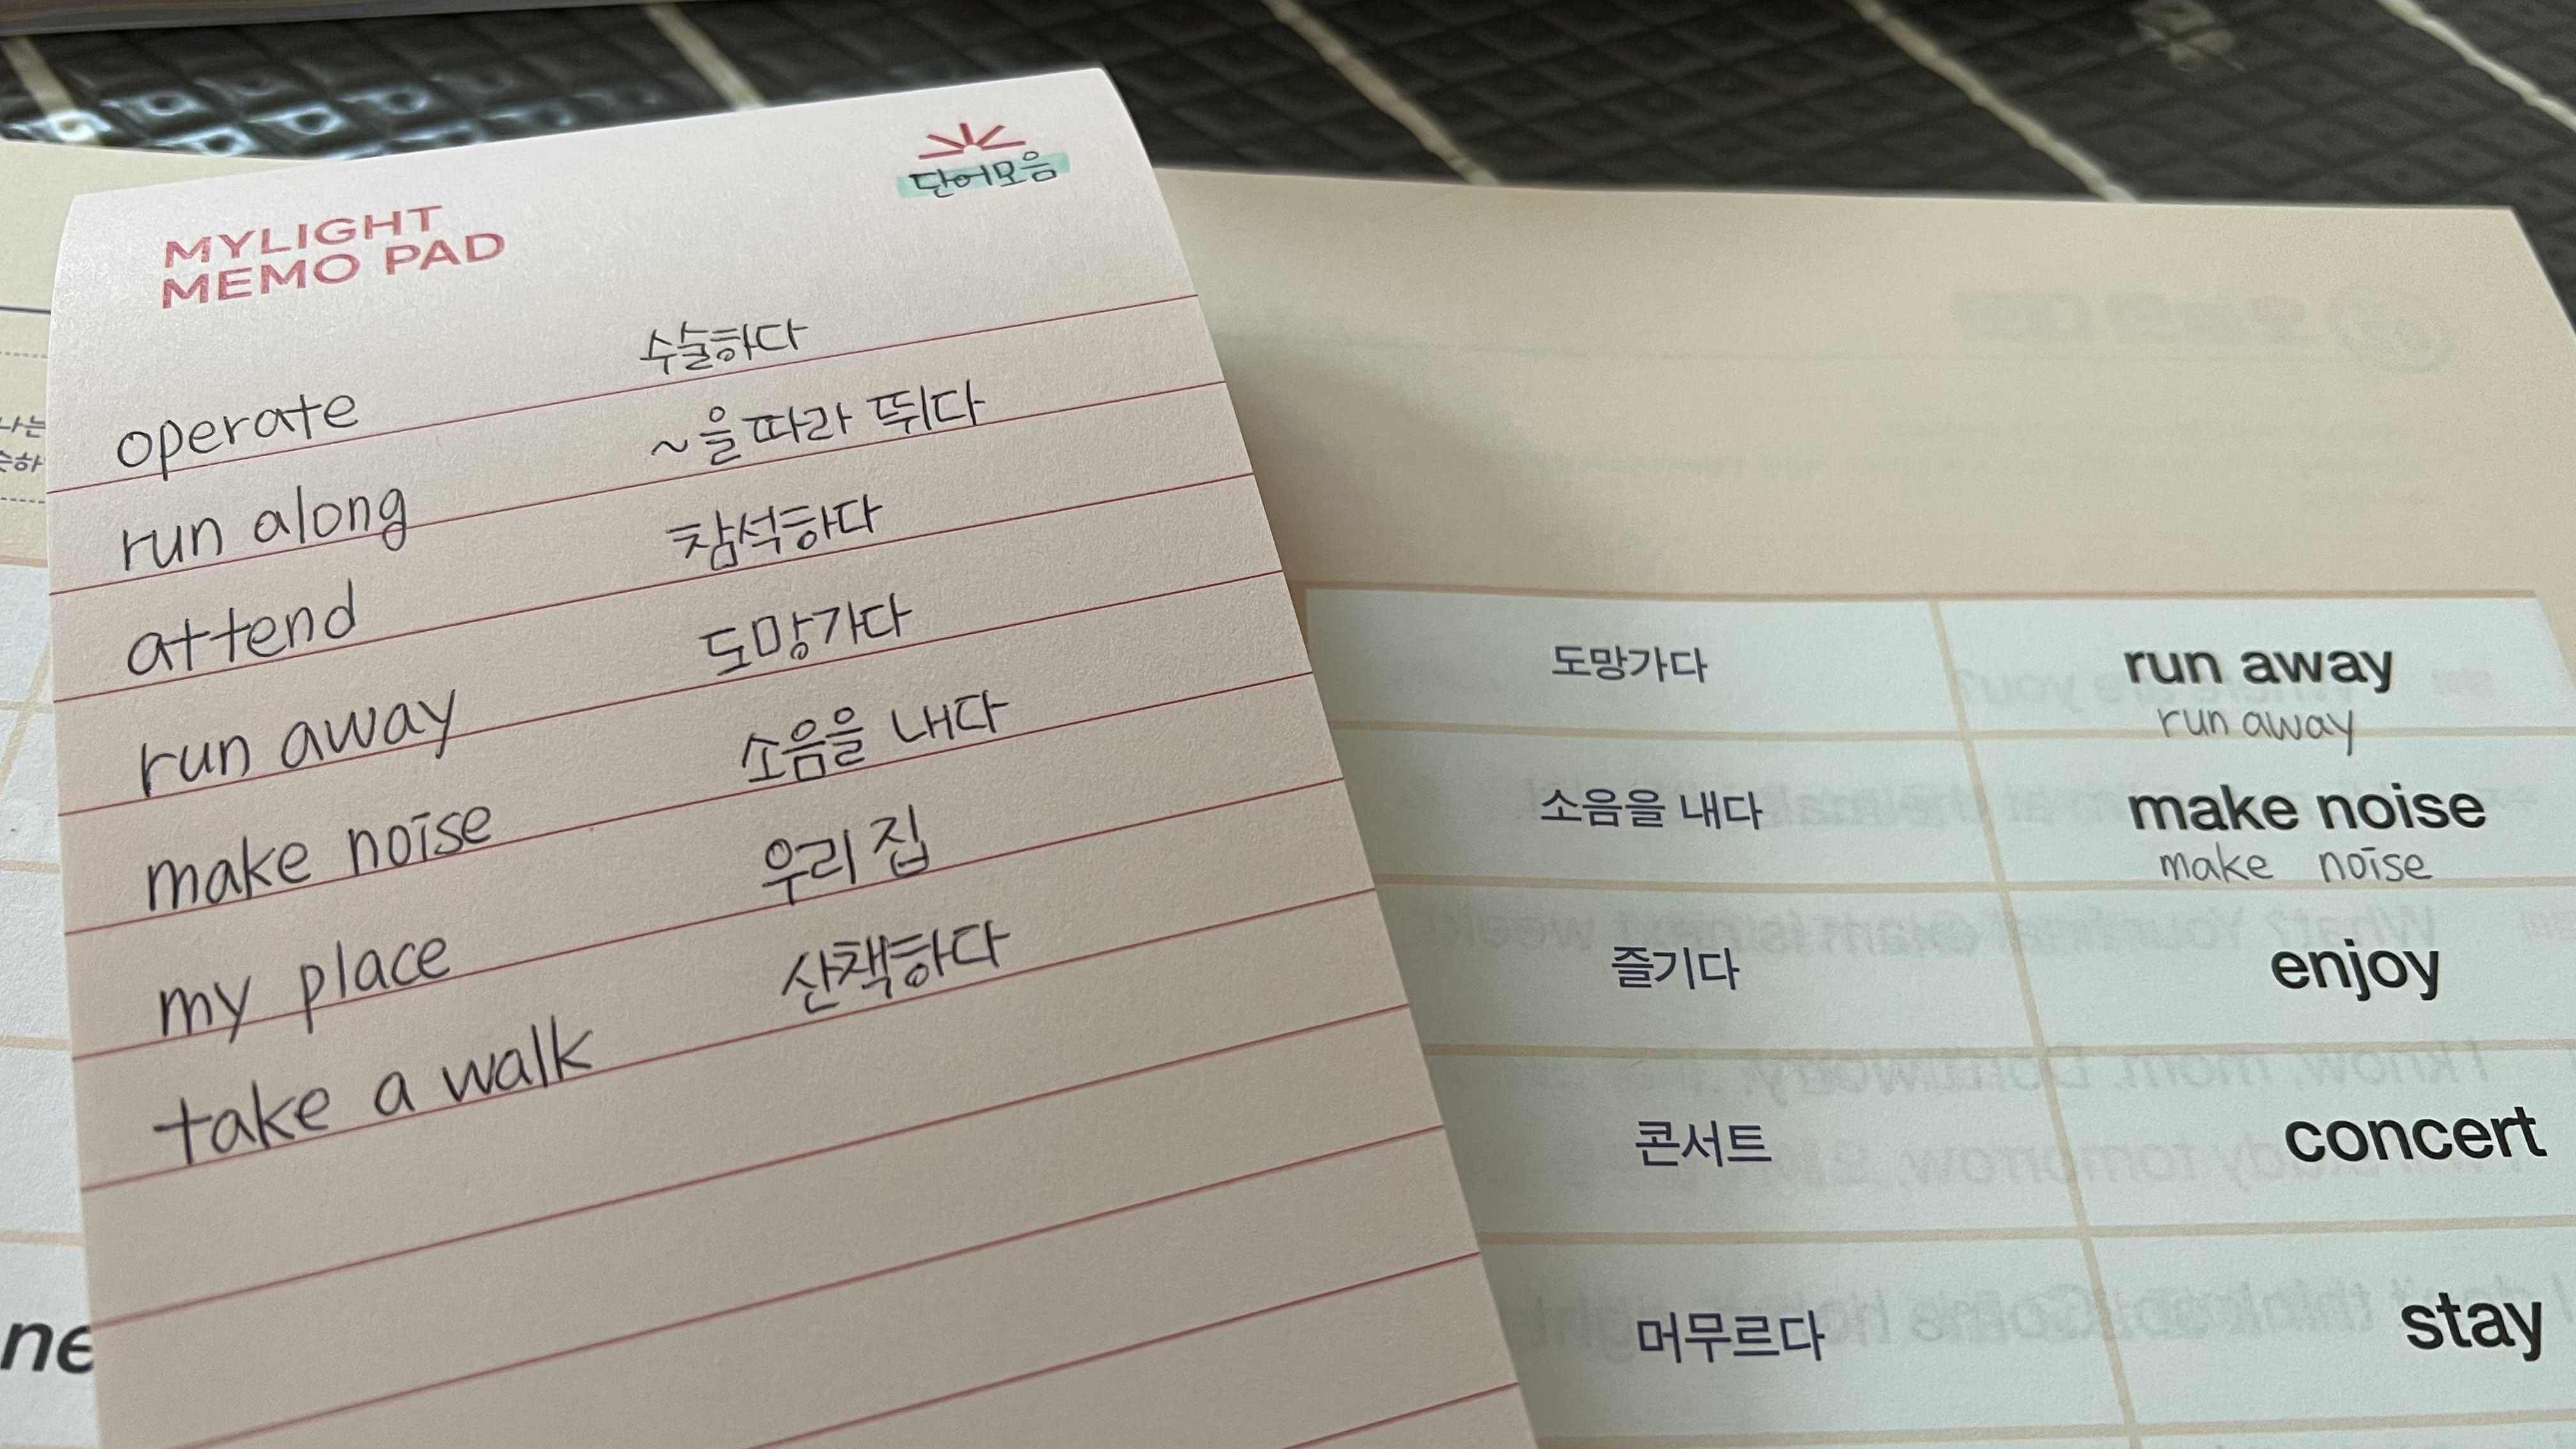 단어모음
MYLIGHT
MEMO PAD
operate 수술하다
run along ~을 따라 뛰다
attend 참석하다
run away 도망가다
make noise 소음을 내다
my place 우리 집
take a walk 산책하다
나는
ne
도망가다 run away
run away
소음을 내다 make noise
make noise
즐기다 enjoy
콘서트 concert
머무르다 stay